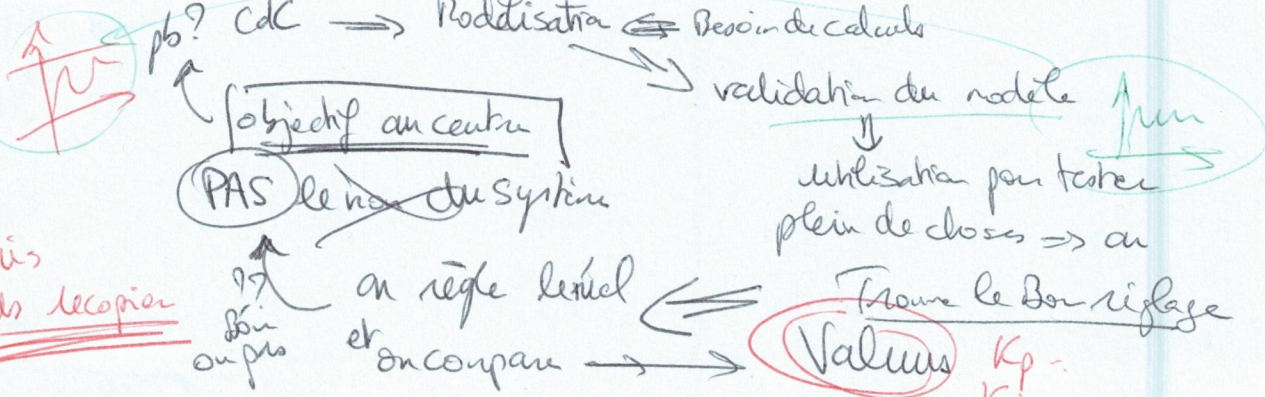 pb? CdC ⟹ Modélisation ⟸ Besoin de calculs
validation du modèle
objectif au centre
PAS le nom du système
utilisation pour tester
plein de choses => on
Trouve le Bon réglage
on règle le réel
et on compare
Valeurs
Kp
recopier
??
Bon
ou pas